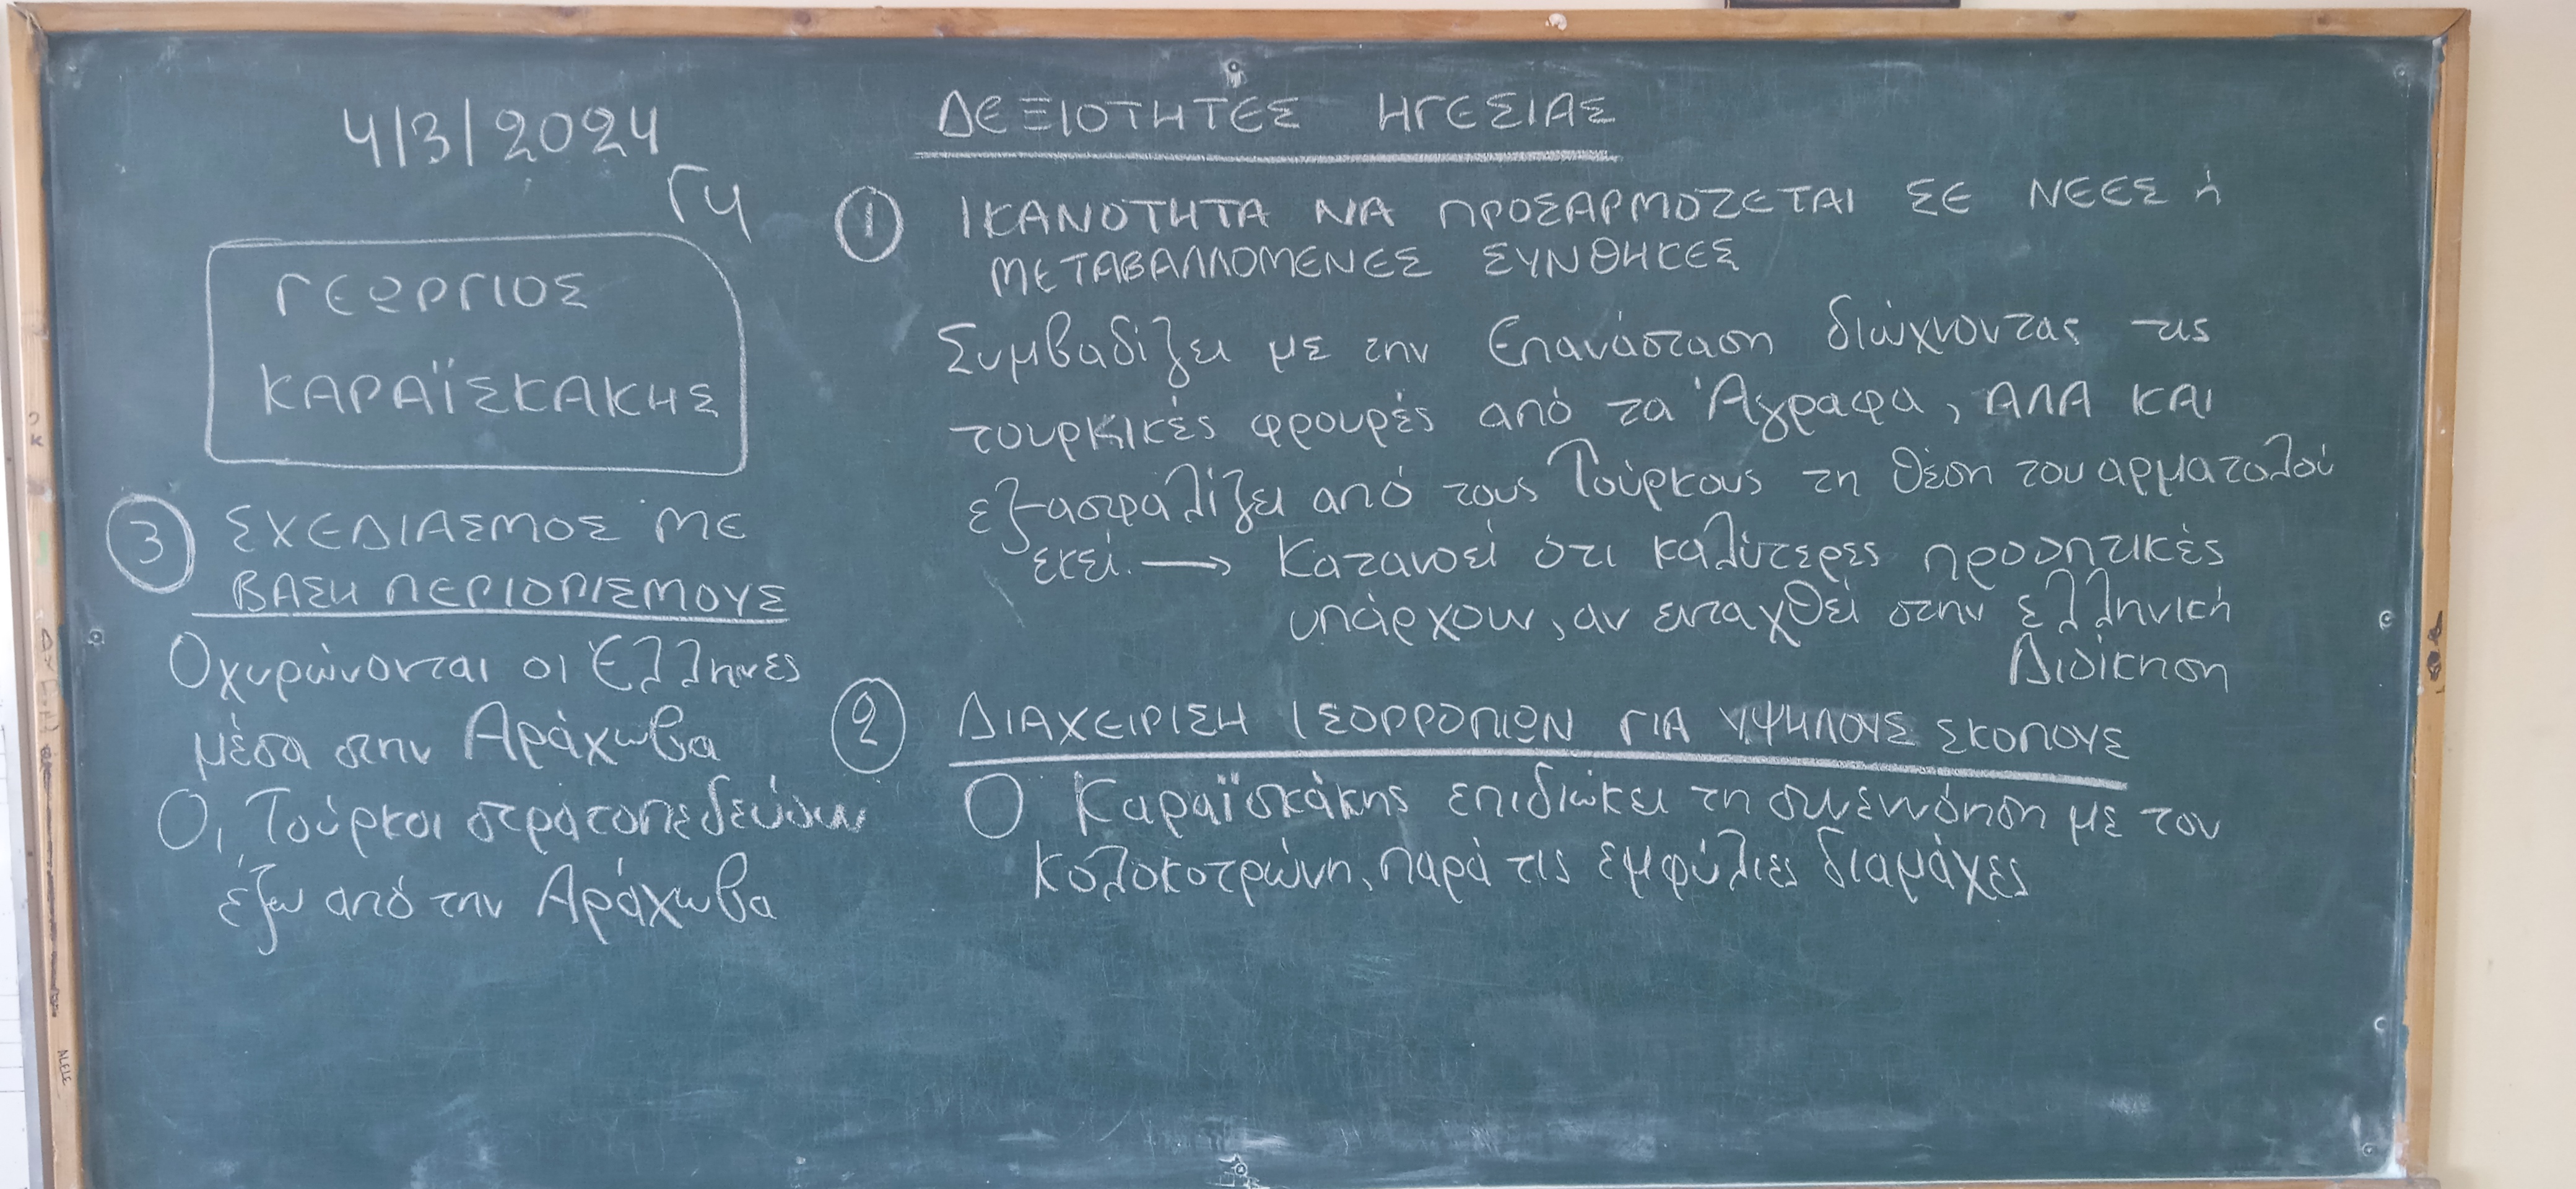 4/3/2024
Γ4
ΓΕΩΡΓΙΟΣ
ΚΑΡΑΪΣΚΑΚΗΣ
ΔΕΞΙΟΤΗΤΕΣ ΗΓΕΣΙΑΣ
① ΙΚΑΝΟΤΗΤΑ ΝΑ ΠΡΟΣΑΡΜΟΖΕΤΑΙ ΣΕ ΝΕΕΣ ή
ΜΕΤΑΒΑΛΛΟΜΕΝΕΣ ΣΥΝΘΗΚΕΣ
Συμβαδίζει με την Επανάσταση διώχνοντας τις
τουρκικές φρουρές από τα Άγραφα, ΑΛΑ ΚΑΙ
εξασφαλίζει από τους Τούρκους τη θέση του αρματολού
εκεί. → Κατανοεί ότι καλύτερες προοπτικές
υπάρχουν, αν ενταχθεί στην ελληνική
Διοίκηση
② ΔΙΑΧΕΙΡΙΣΗ ΙΣΟΡΡΟΠΙΩΝ ΓΙΑ ΥΨΗΛΟΥΣ ΣΚΟΠΟΥΣ
Ο Καραϊσκάκης επιδιώκει τη συνεννόηση με τον
Κολοκοτρώνη, παρά τις εμφύλιες διαμάχες
③ ΣΧΕΔΙΑΣΜΟΣ ΜΕ
ΒΑΣΗ ΠΕΡΙΟΡΙΣΜΟΥΣ
Οχυρώνονται οι Έλληνες
μέσα στην Αράχωβα
Οι Τούρκοι στρατοπεδεύουν
έξω από την Αράχωβα